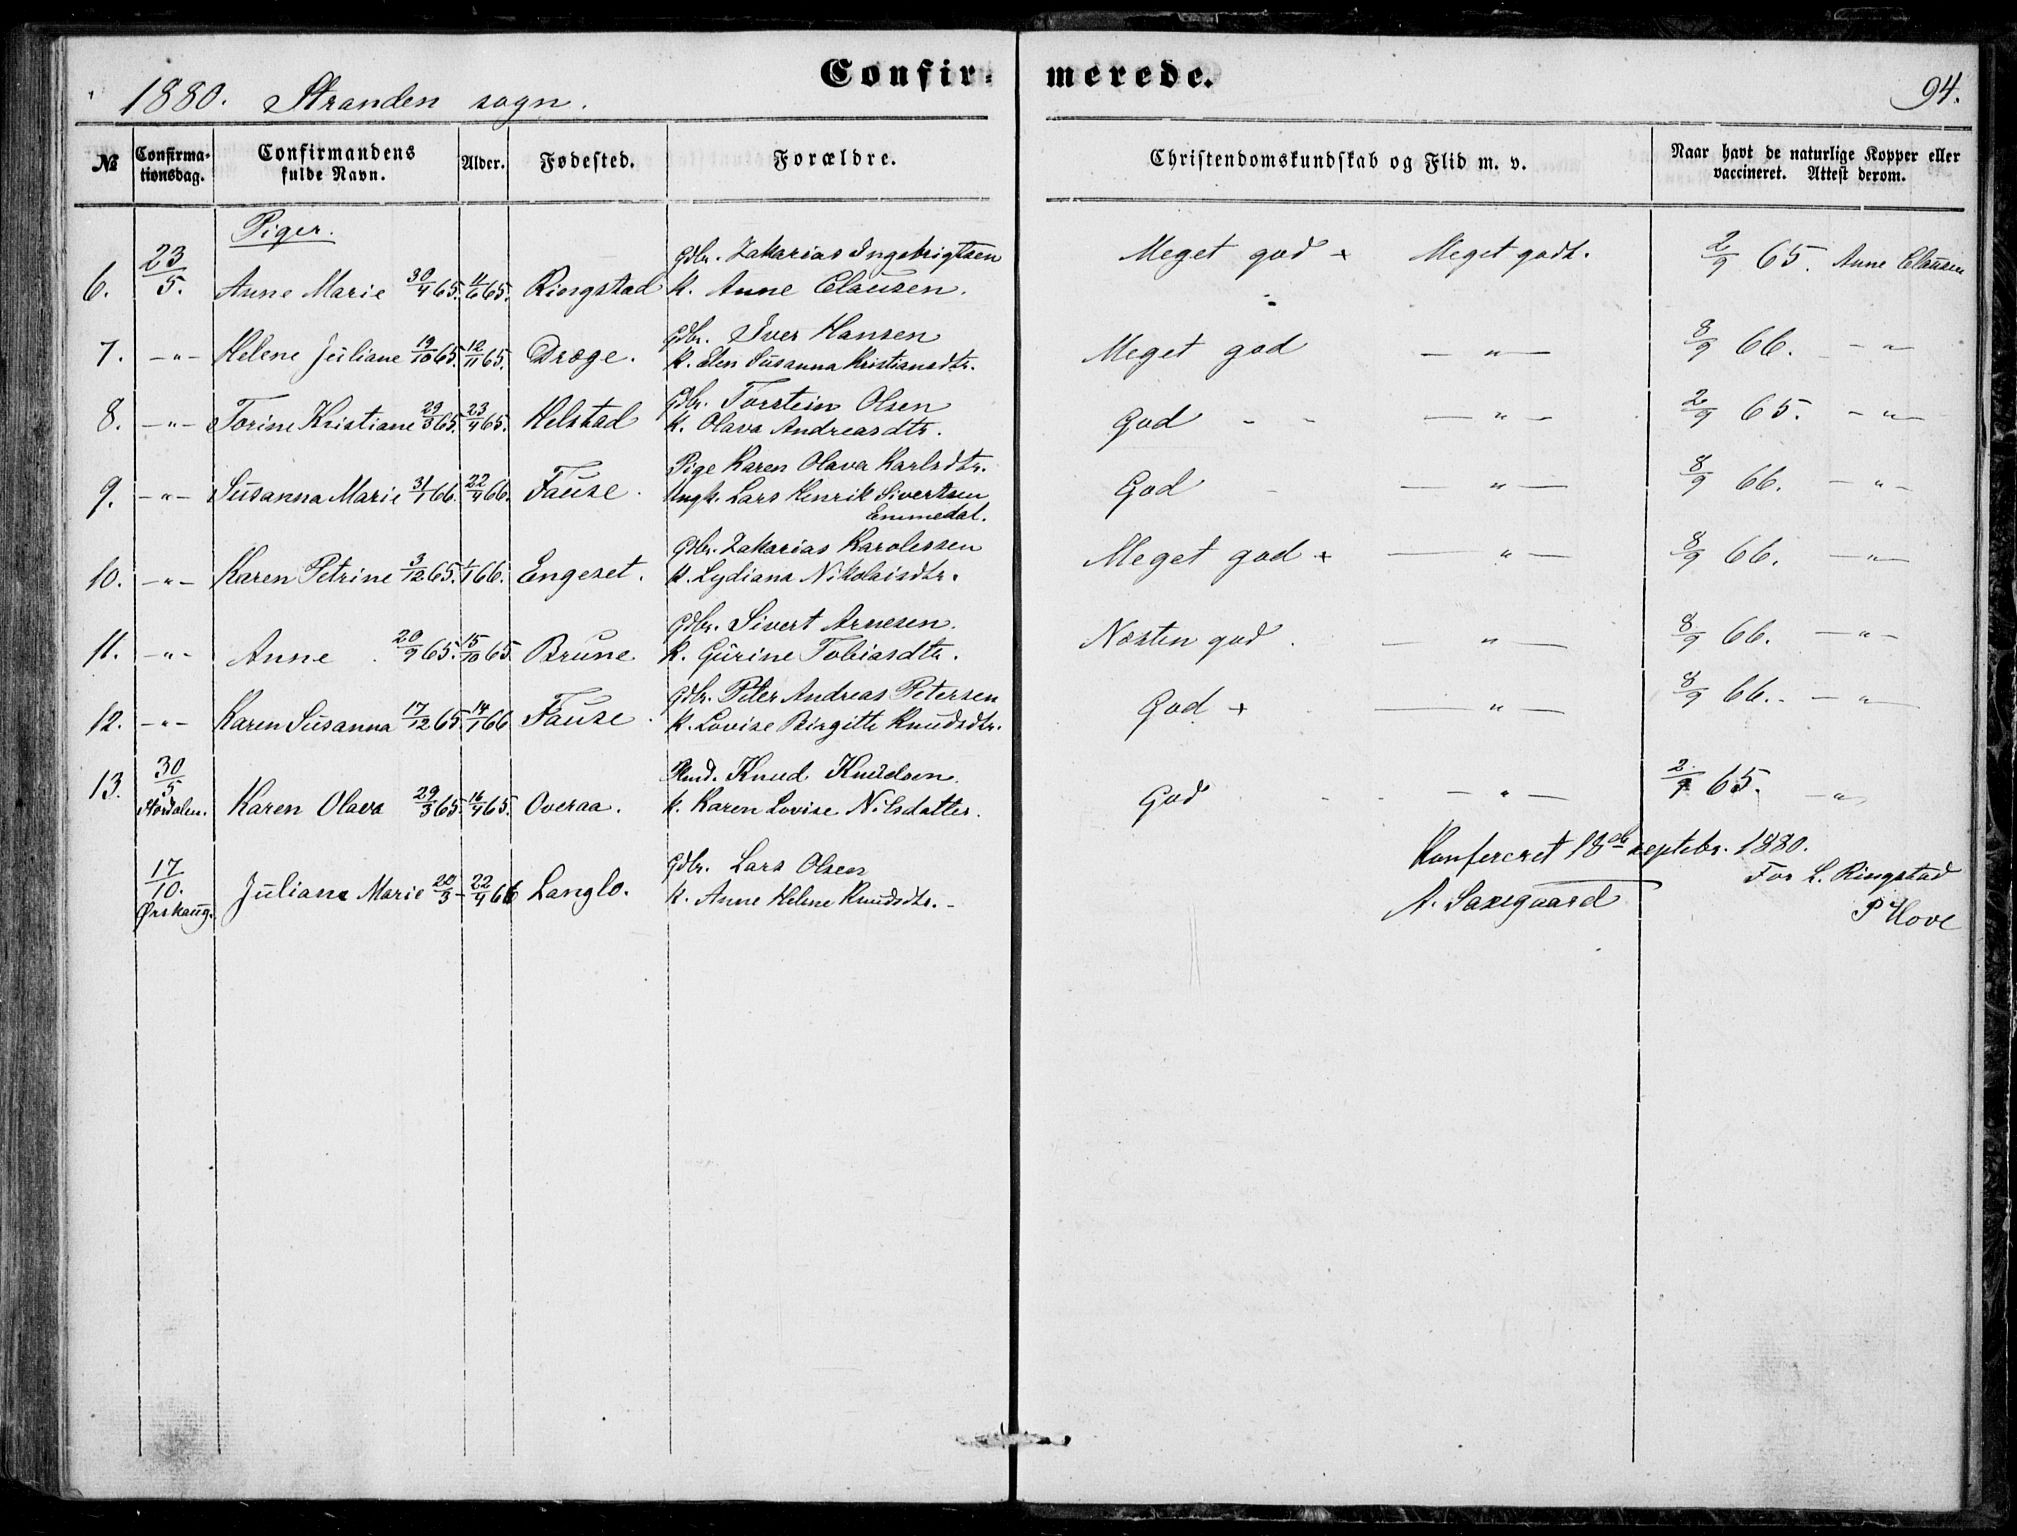 Confir- merede.
1880. Stranden sogn. 94.
№ Confirma-tionsdag. Confirmandens fulde Navn. Alder. Fødested. Forældre. Christendomskundskab og Flid m. v. Naar havt de naturlige Kopper eller vaccineret. Attest derom.
Piger.
Gdbr. Zakarias Ingebrigtsen
6. 23/5. Anne Marie 30/4 65. 11/6 65. Ringstad K. Anne Clausen. Meget god + Meget godt. 2/9 65. Anne Clausen
Gdbr. Iver Hansen
7. -"- Helene Juliane 19/10 65. 12/11 65. Drøge. K. Elen Susanna Kristiansdtr. Meget god -"- 8/9 66. -"-
Gdbr. Torstein Olsen
8. -"- Torine Kristiane 29/3 65. 23/4 65. Helstad K. Olava Andreasdtr. God - - -"- 2/9 65. -"-
Pige Karen Olava Karlsdtr.
9. -"- Susanna Marie 31/1 66. 22/4 66. Fause. Ungk. Lars Henrik Sivertsen God - -"- 8/9 66. -"-
Emmedal.
Gdbr. Zakarias Karolessen
10. -"- Karen Petrine 3/12 65. 1/1 66. Engeset. K. Lydiana Nikolaisdtr. Meget god + -"- 8/9 66. -"-
Gdbr. Sivert Arnesen.
11. -"- Anne 20/9 65. 15/10 65 Brune K. Gurine Tobiasdtr. Næsten god. -"- 8/9 66. -"-
Gdbr. Peter Andreas Petersen
12. -"- Karen Susanna 17/12 65. 14/1 66 Fause. K. Lovise Birgitte Knudsdtr. God + -"- 8/9 66. -"-
Knud Knudsen.
13. 30/5 Stordalen. Karen Olava 29/3 65. 16/4 65. Overaa. K. Karen Lovise Nilsdatter. God -"- 2/9 65. -"-
Konfereret 18de septebr. 1880.
Gdbr. Lars Olsen For L. Ringstad
17/10. Ørskaug. Juliane Marie 20/3 - 22/4 66 Langlo. K. Anne Helene Knudsdtr. - A. Saxegaard P Hove